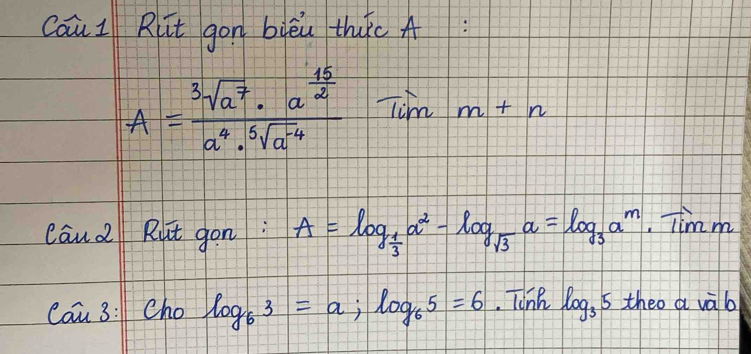 Câu 1 Rút gọn biểu thức A :
A = \frac{\sqrt[3]{a^7} . a^{\frac{15}{2}}}{a^4 . \sqrt[5]{a^{-4}}} Tìm m + n
Câu 2 Rút gọn : A = log_{\frac{1}{3}} a^2 - log_{\sqrt{3}} a = log_3 a^m . Tìm m
Câu 3: Cho log_6 3 = a ; log_6 5 = 6 . Tính log_3 5 theo a và b